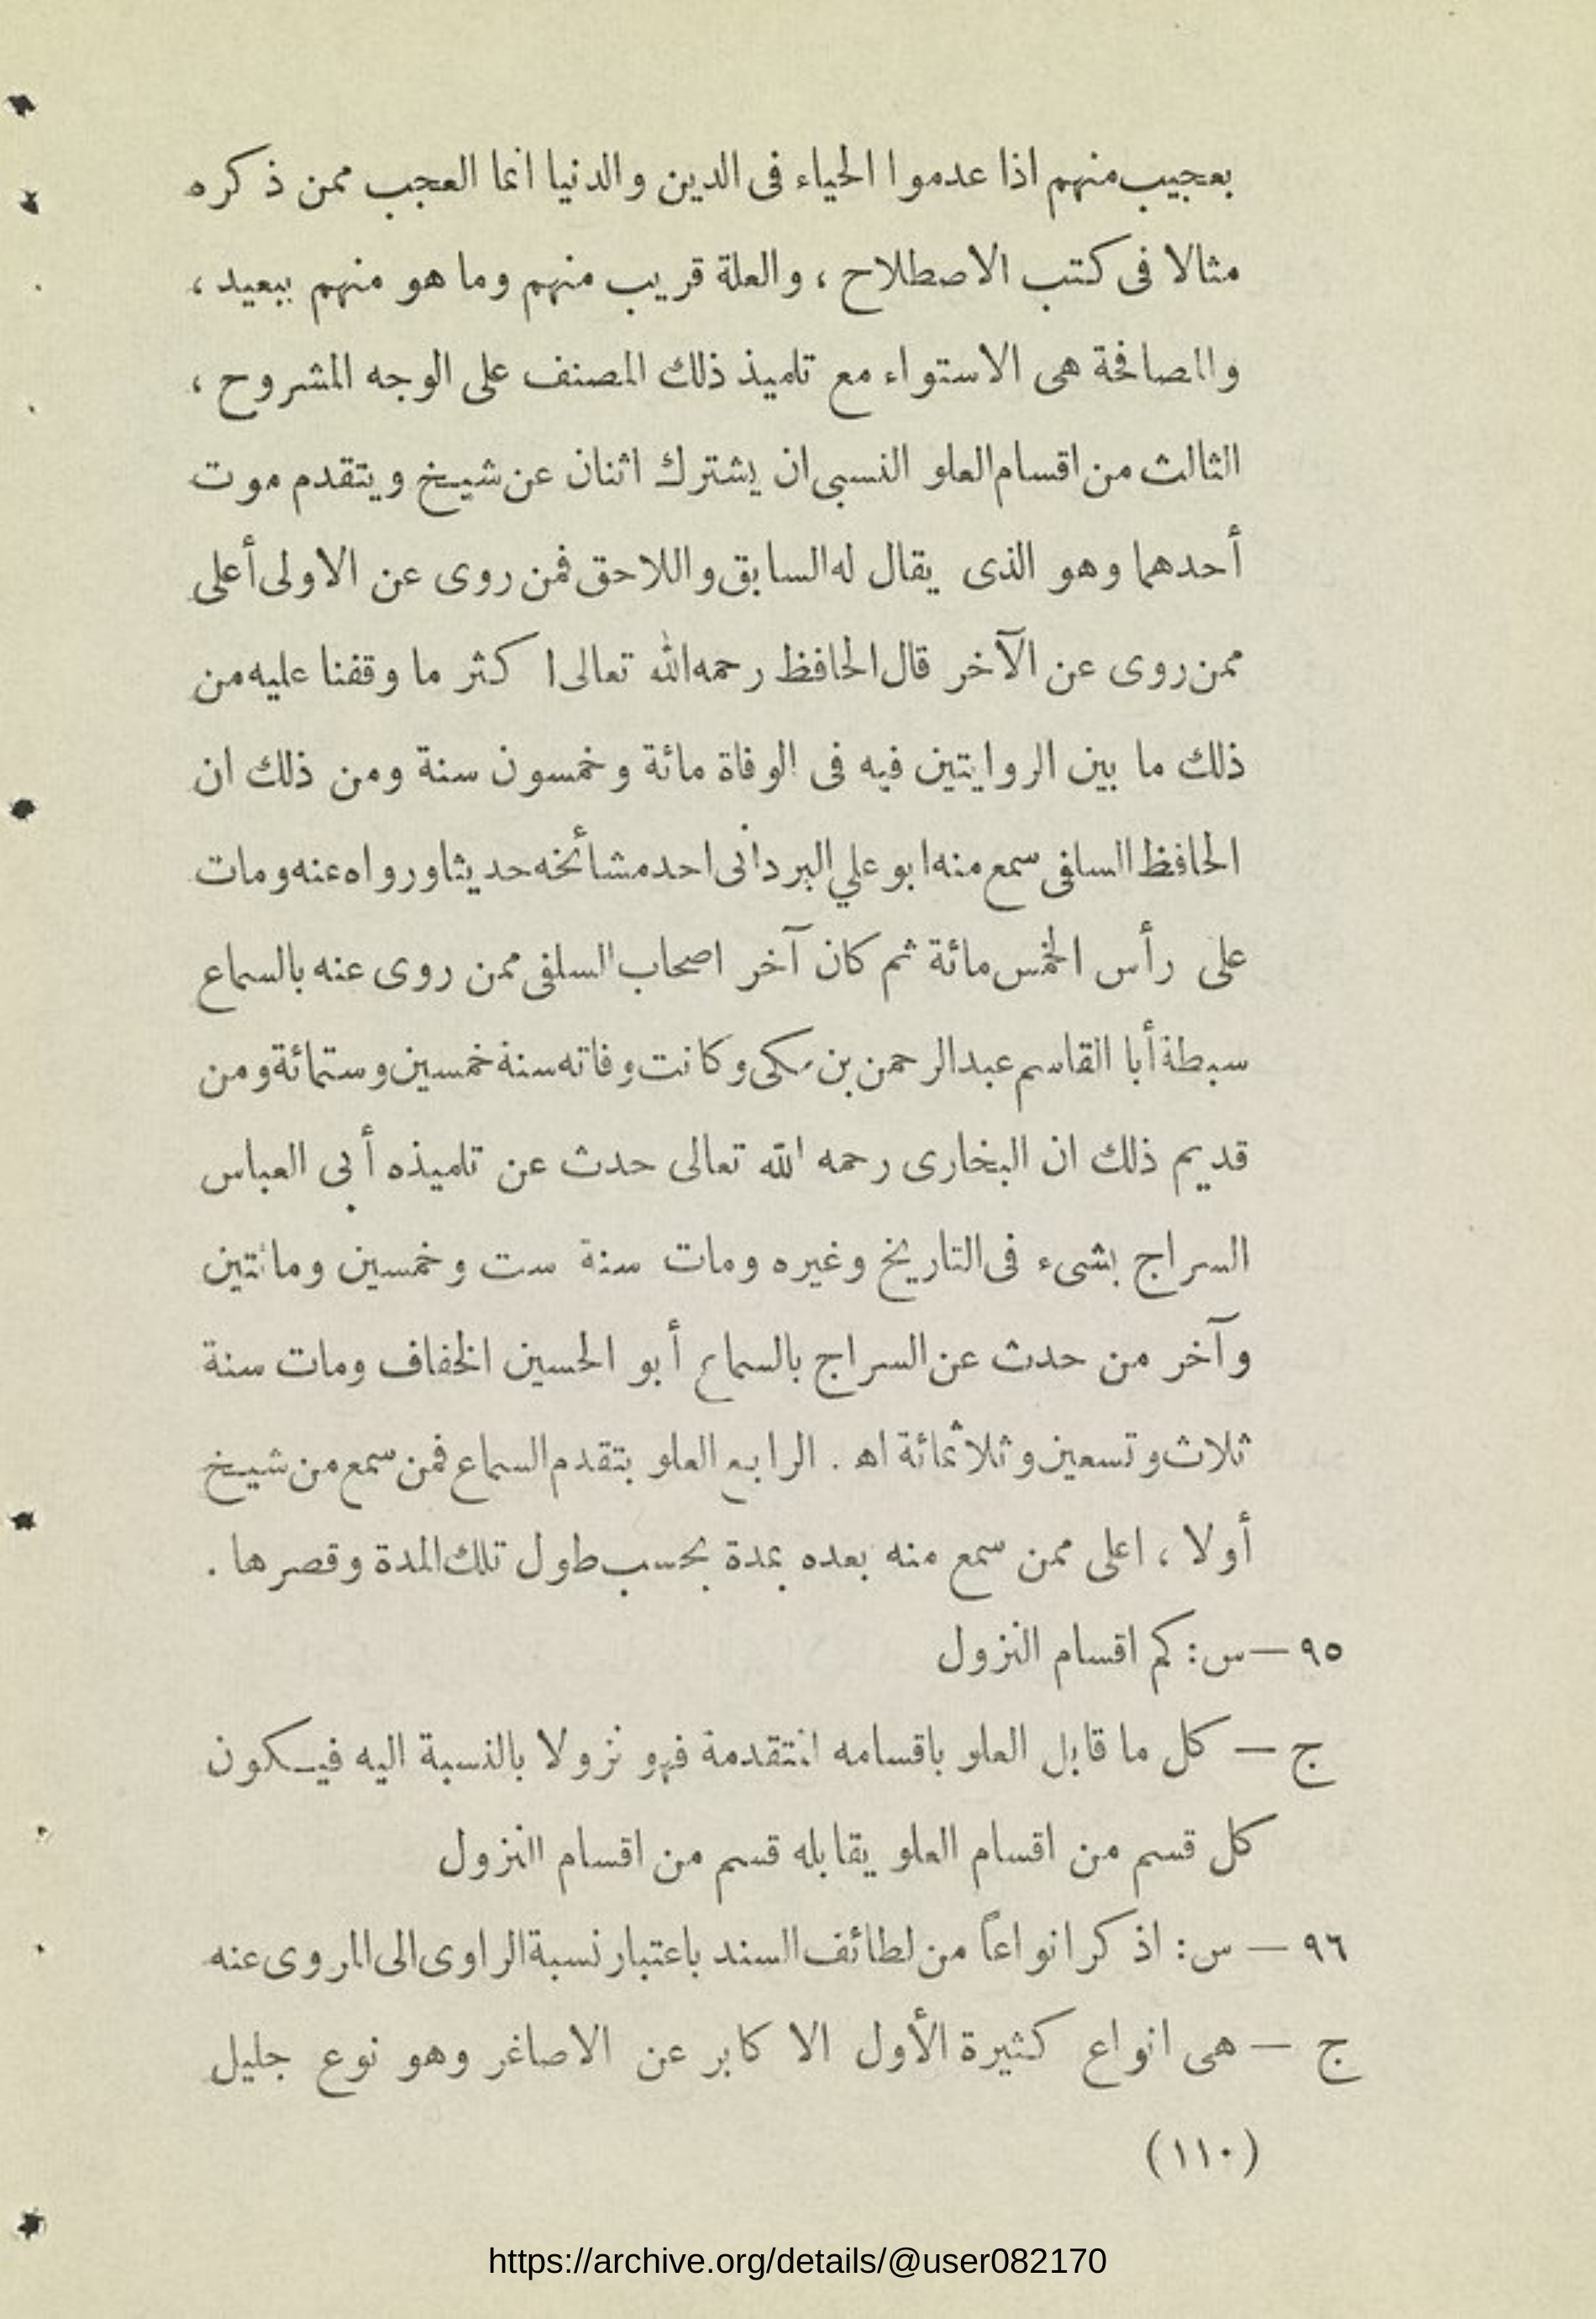 بعجيب منهم اذا عدموا الحياء فى الدين والدنيا انما العجب ممن ذكره
مثالا فى كتب الاصطلاح ، والعلة قريب منهم وما هو منهم ببعيد ،
والمصافحة هى الاستواء مع تلميذ ذلك المصنف على الوجه المشروح ،
الثالث من اقسام العلو النسبى ان يشترك اثنان عن شيخ ويتقدم موت
أحدهما وهو الذى يقال له السابق واللاحق فمن روى عن الاولى أعلى
ممن روى عن الآخر قال الحافظ رحمه الله تعالى اكثر ما وقفنا عليه من
ذلك ما بين الروايتين فيه فى الوفاة مائة وخمسون سنة ومن ذلك ان
الحافظ السلفى سمع منه ابو علي البردانى احد مشائخه حديثا ورواه عنه ومات
على رأس الخمس مائة ثم كان آخر اصحاب السلفى ممن روى عنه بالسماع
سبطة أبا القاسم عبد الرحمن بن مكى وكانت وفاته سنة خمسين وستمائة ومن
قديم ذلك ان البخارى رحمه الله تعالى حدث عن تلميذه أبي العباس
السراج بشىء فى التاريخ وغيره ومات سنة ست وخمسين ومائتين
وآخر من حدث عن السراج بالسماع أبو الحسين الخفاف ومات سنة
ثلاث وتسعين وثلاثمائة اه . الرابع العلو بتقدم السماع فمن سمع من شيخ
أولا ، اعلى ممن سمع منه بعده بمدة بحسب طول تلك المدة وقصرها .
٩٥ — س : كم اقسام النزول
ج — كل ما قابل العلو باقسامه المتقدمة فهو نزولا بالنسبة اليه فيكون
كل قسم من اقسام العلو يقابله قسم من اقسام النزول
٩٦ — س : اذكر انواعاً من لطائف السند باعتبار نسبة الراوى الى المروى عنه
ج — هى انواع كثيرة الأول الاكابر عن الاصاغر وهو نوع جليل
(١١٠)
https://archive.org/details/@user082170